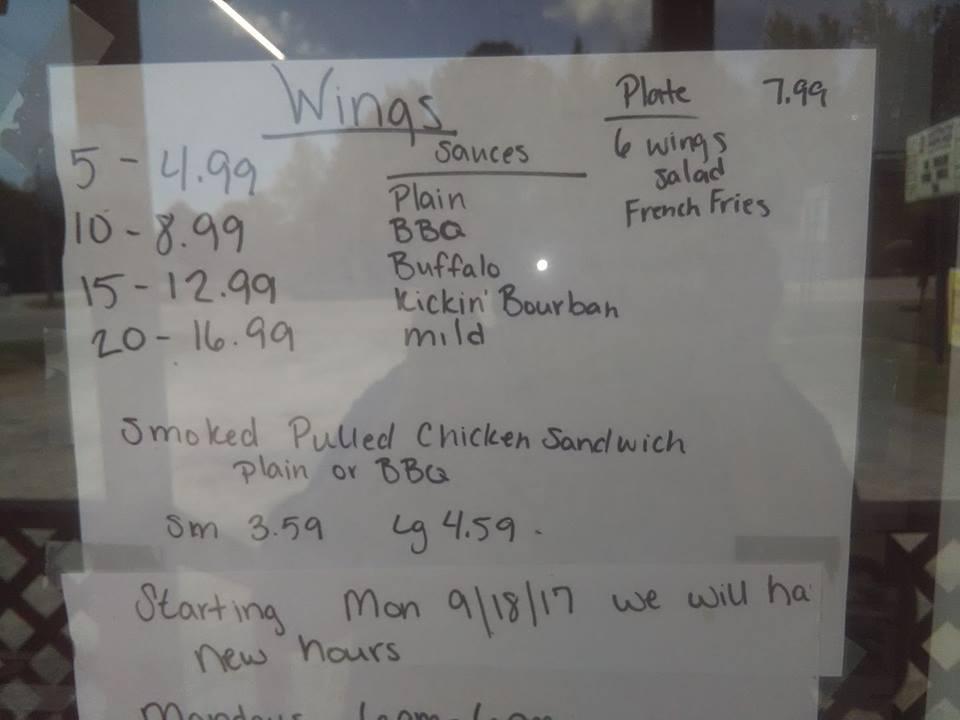 Wings
5 - 4.99
10 - 8.99
15 - 12.99
20 - 16.99
Sauces
Plain
BBQ
Buffalo
Kickin' Bourban
mild
Plate 7.99
6 wings
salad
French Fries
Smoked Pulled Chicken Sandwich
Plain or BBQ
Sm 3.59 Lg 4.59
Starting Mon 9/18/17 we will ha
new hours